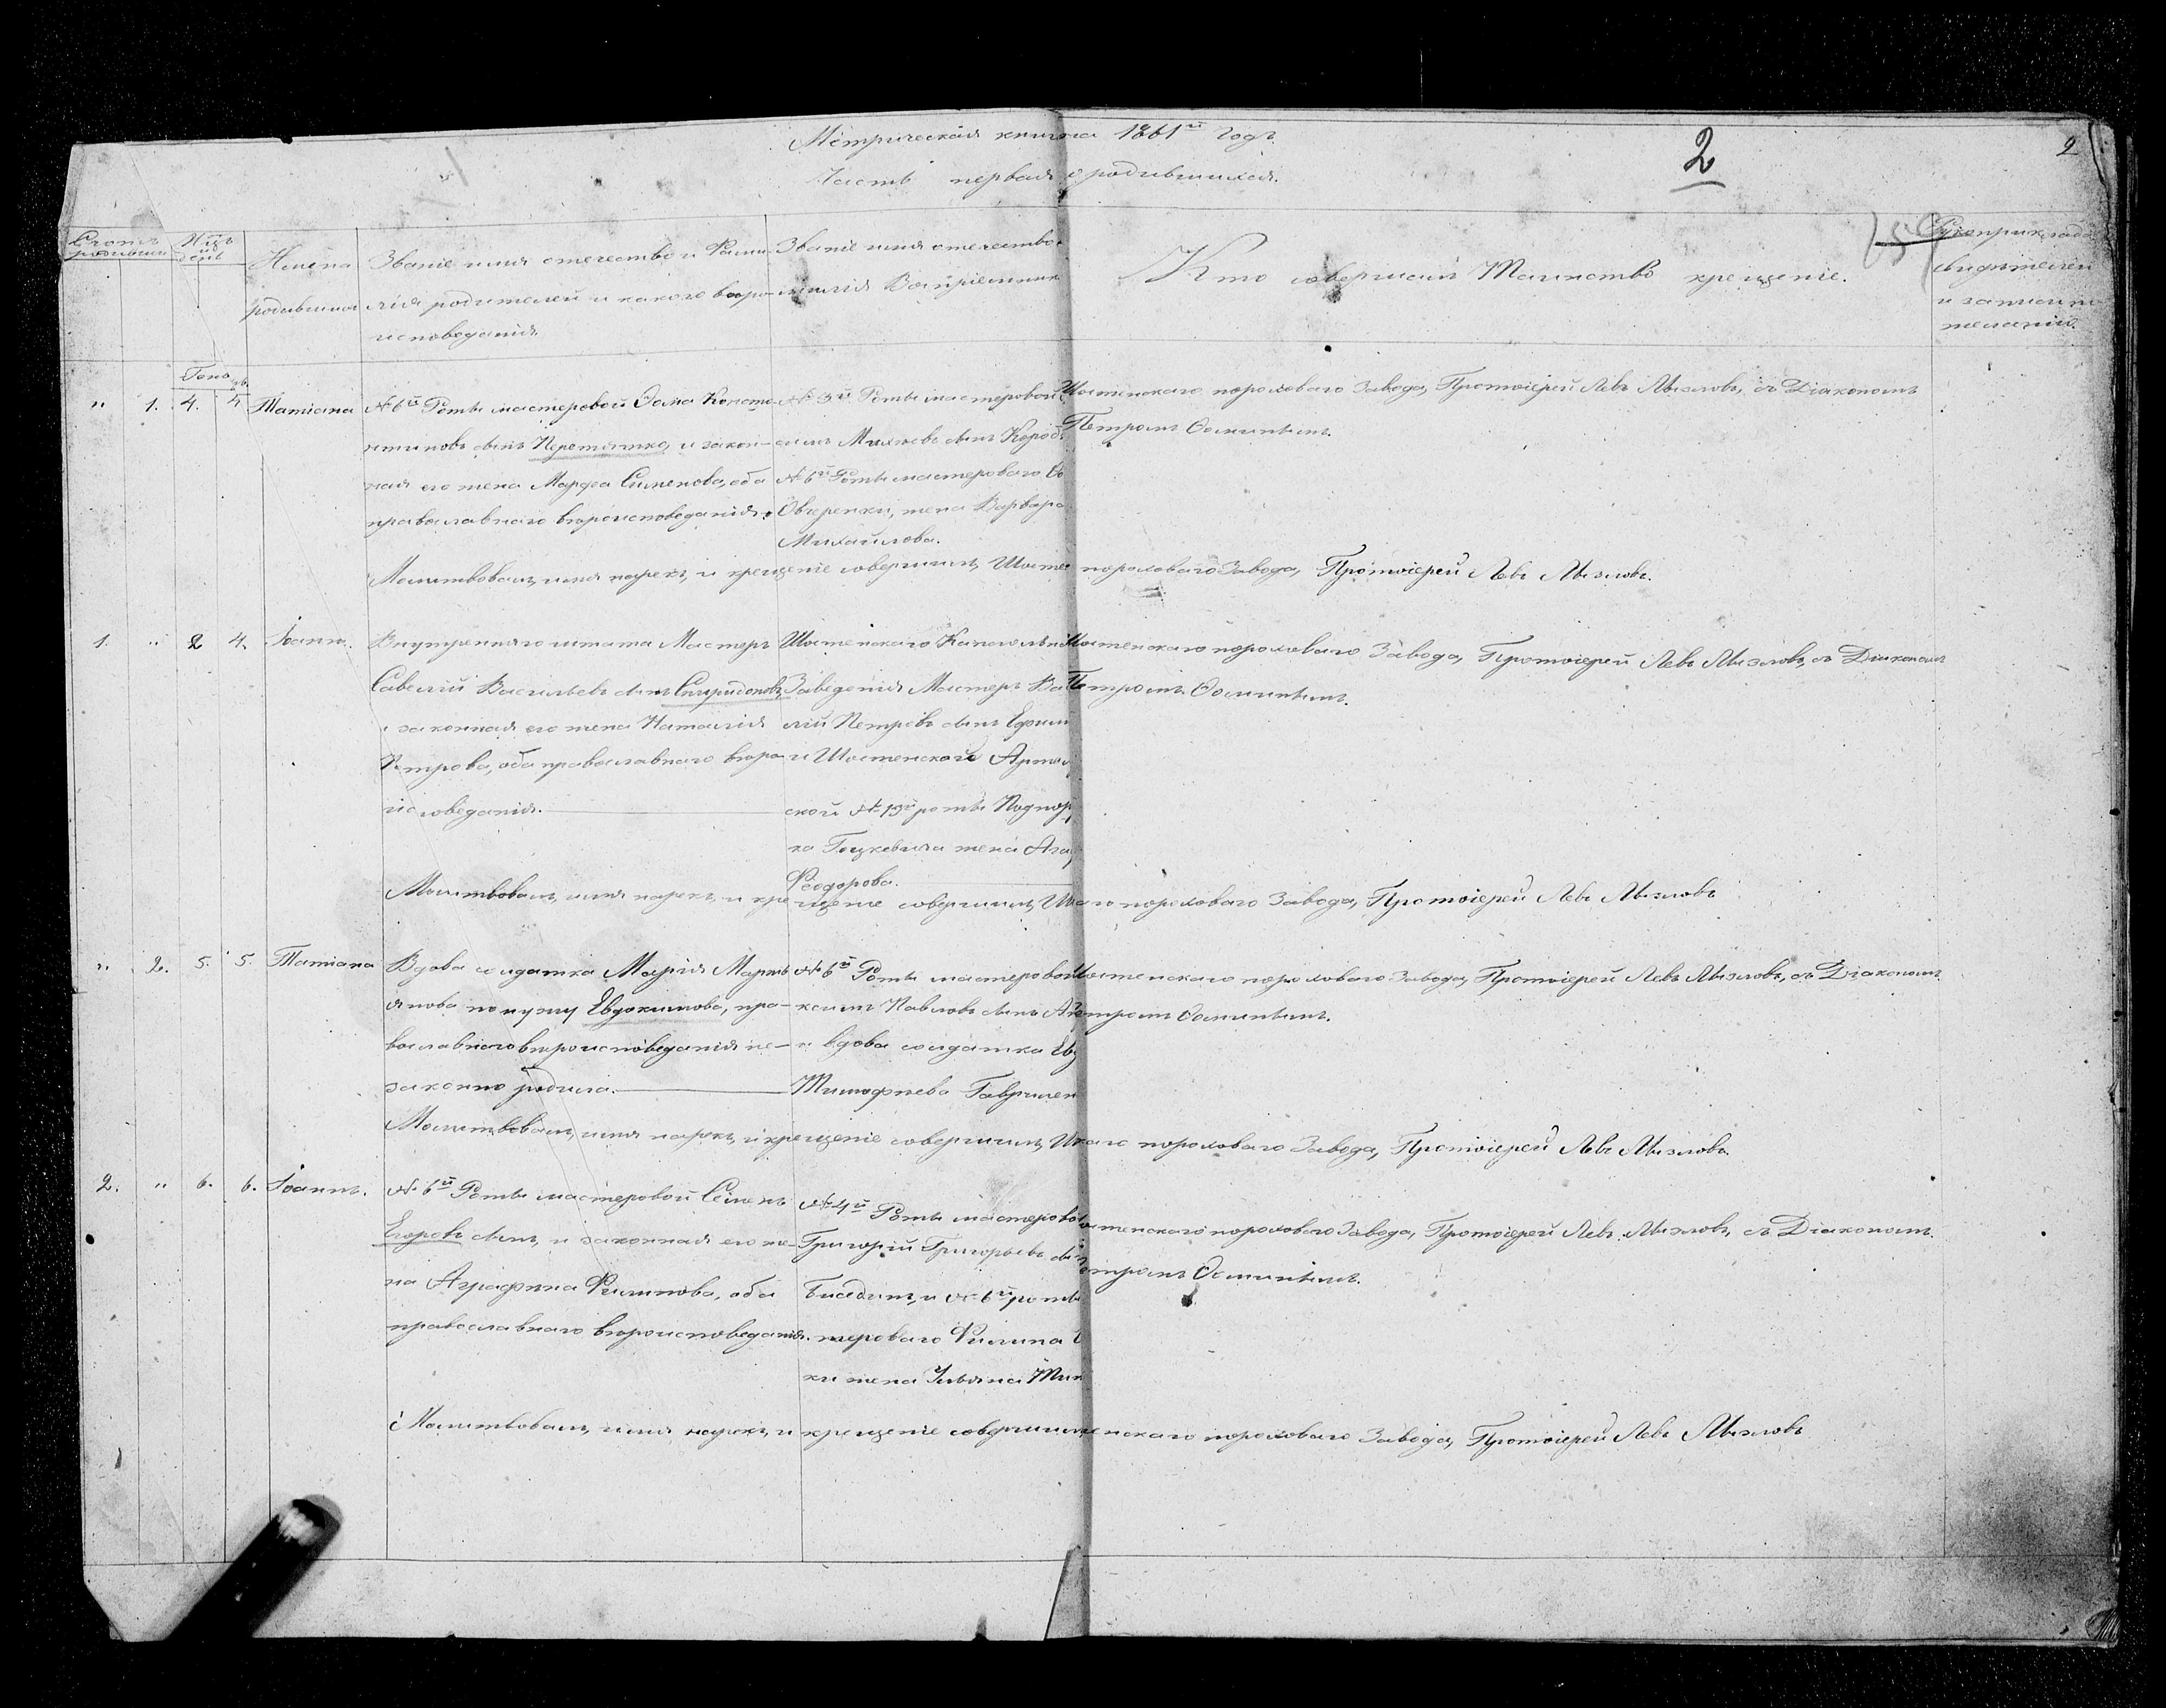 Метрическая книга 1861го Годъ.
Часть первая о родившихся.
2
2
Счотъ родивших
Мцъ день
Имена родившихся
Званіе имя отечество и Фами-
лія родителей и какого веро-
исповеданія.
Званіе имя отечество
милія Воспріемник
Кто совершалъ Таинство крещеніе.
Рукоприклада
свидетелей
и записи по
желанію.
Генв.
" 1. 4. 4 Татіана
№ 6й Роты мастеровой Ѳома Конста-
нтиновъ сынъ Перетятко, и закон-
ная его жена Марфа Сименова, оба
православнаго вероисповеданія.
№ 3й Роты мастеровой
симъ Михеевъ сынъ Короб
№ 6й Роты мастероваго
Овчеренки, жена Варвара
Михайлова.
Шостенскаго пороховаго Завода, Протоіерей Левъ Мызловъ, съ Діакономъ
Петромъ Ѳоминымъ.
Молитвовалъ, имя нарекъ, и крещеніе совершилъ, Шосте пороховаго Завода, Протоіерей Левъ Мызловъ.
1. " 2 4. Іоаннъ.
Внутренняго штата Мастеръ
Савелій Васильевъ сынъ Спиридоновъ,
и законная его жена Наталія
Петрова, оба православнаго веро-
исповеданія.
Шостенскаго Капсюльн
Заведенія Мастеръ Ва
лій Петровъ сынъ Ефим
и Шостенской Артил
ской № 13й роты Подпор
ка Гецкевича жена Ага
Феодорова.
Шостенскаго пороховаго Завода, Протоіерей Левъ Мызловъ, съ Діакономъ
Петромъ Ѳоминымъ.
Молитвовалъ, имя нарекъ, и крещеніе совершилъ, Ш аго пороховаго Завода, Протоіерей Левъ Мызловъ
" 2. 5. 5. Татіана
Вдова солдатка Марія Март
янова по мужу Евдокимова, пра-
вославнаго вероисповеданія не-
законно родила.
№ 6й Роты мастеровой
ксимъ Павловъ сынъ
и вдова солдатка Евд
Тимофеева Гаврилен
Шостенскаго пороховаго Завода, Протоіерей Левъ Мызловъ, съ Діакономъ
Петромъ Ѳоминымъ.
Молитвовалъ, имя нарекъ, и крещеніе совершилъ, Ш каго пороховаго Завода, Протоіерей Левъ Мызловъ.
2. " 6. 6. Іоаннъ.
№ 6й Роты мастеровой Семенъ
Егоровъ сынъ, и законная его же-
на Аграфена Филипова, оба
православнаго вероисповеданія.
№ 4й Роты мастерово
Григорій Григорьевъ сы
Биседин, и № 6й роты
тероваго Филипа
ки жена Ульяна Тим
остенскаго пороховаго Завода, Протоіерей Левъ Мызловъ, съ Діакономъ
етромъ Ѳоминымъ.
Молитвовалъ, имя нарекъ, и крещеніе совершилъ енскаго пороховаго Завода, Протоіерей Левъ Мызловъ